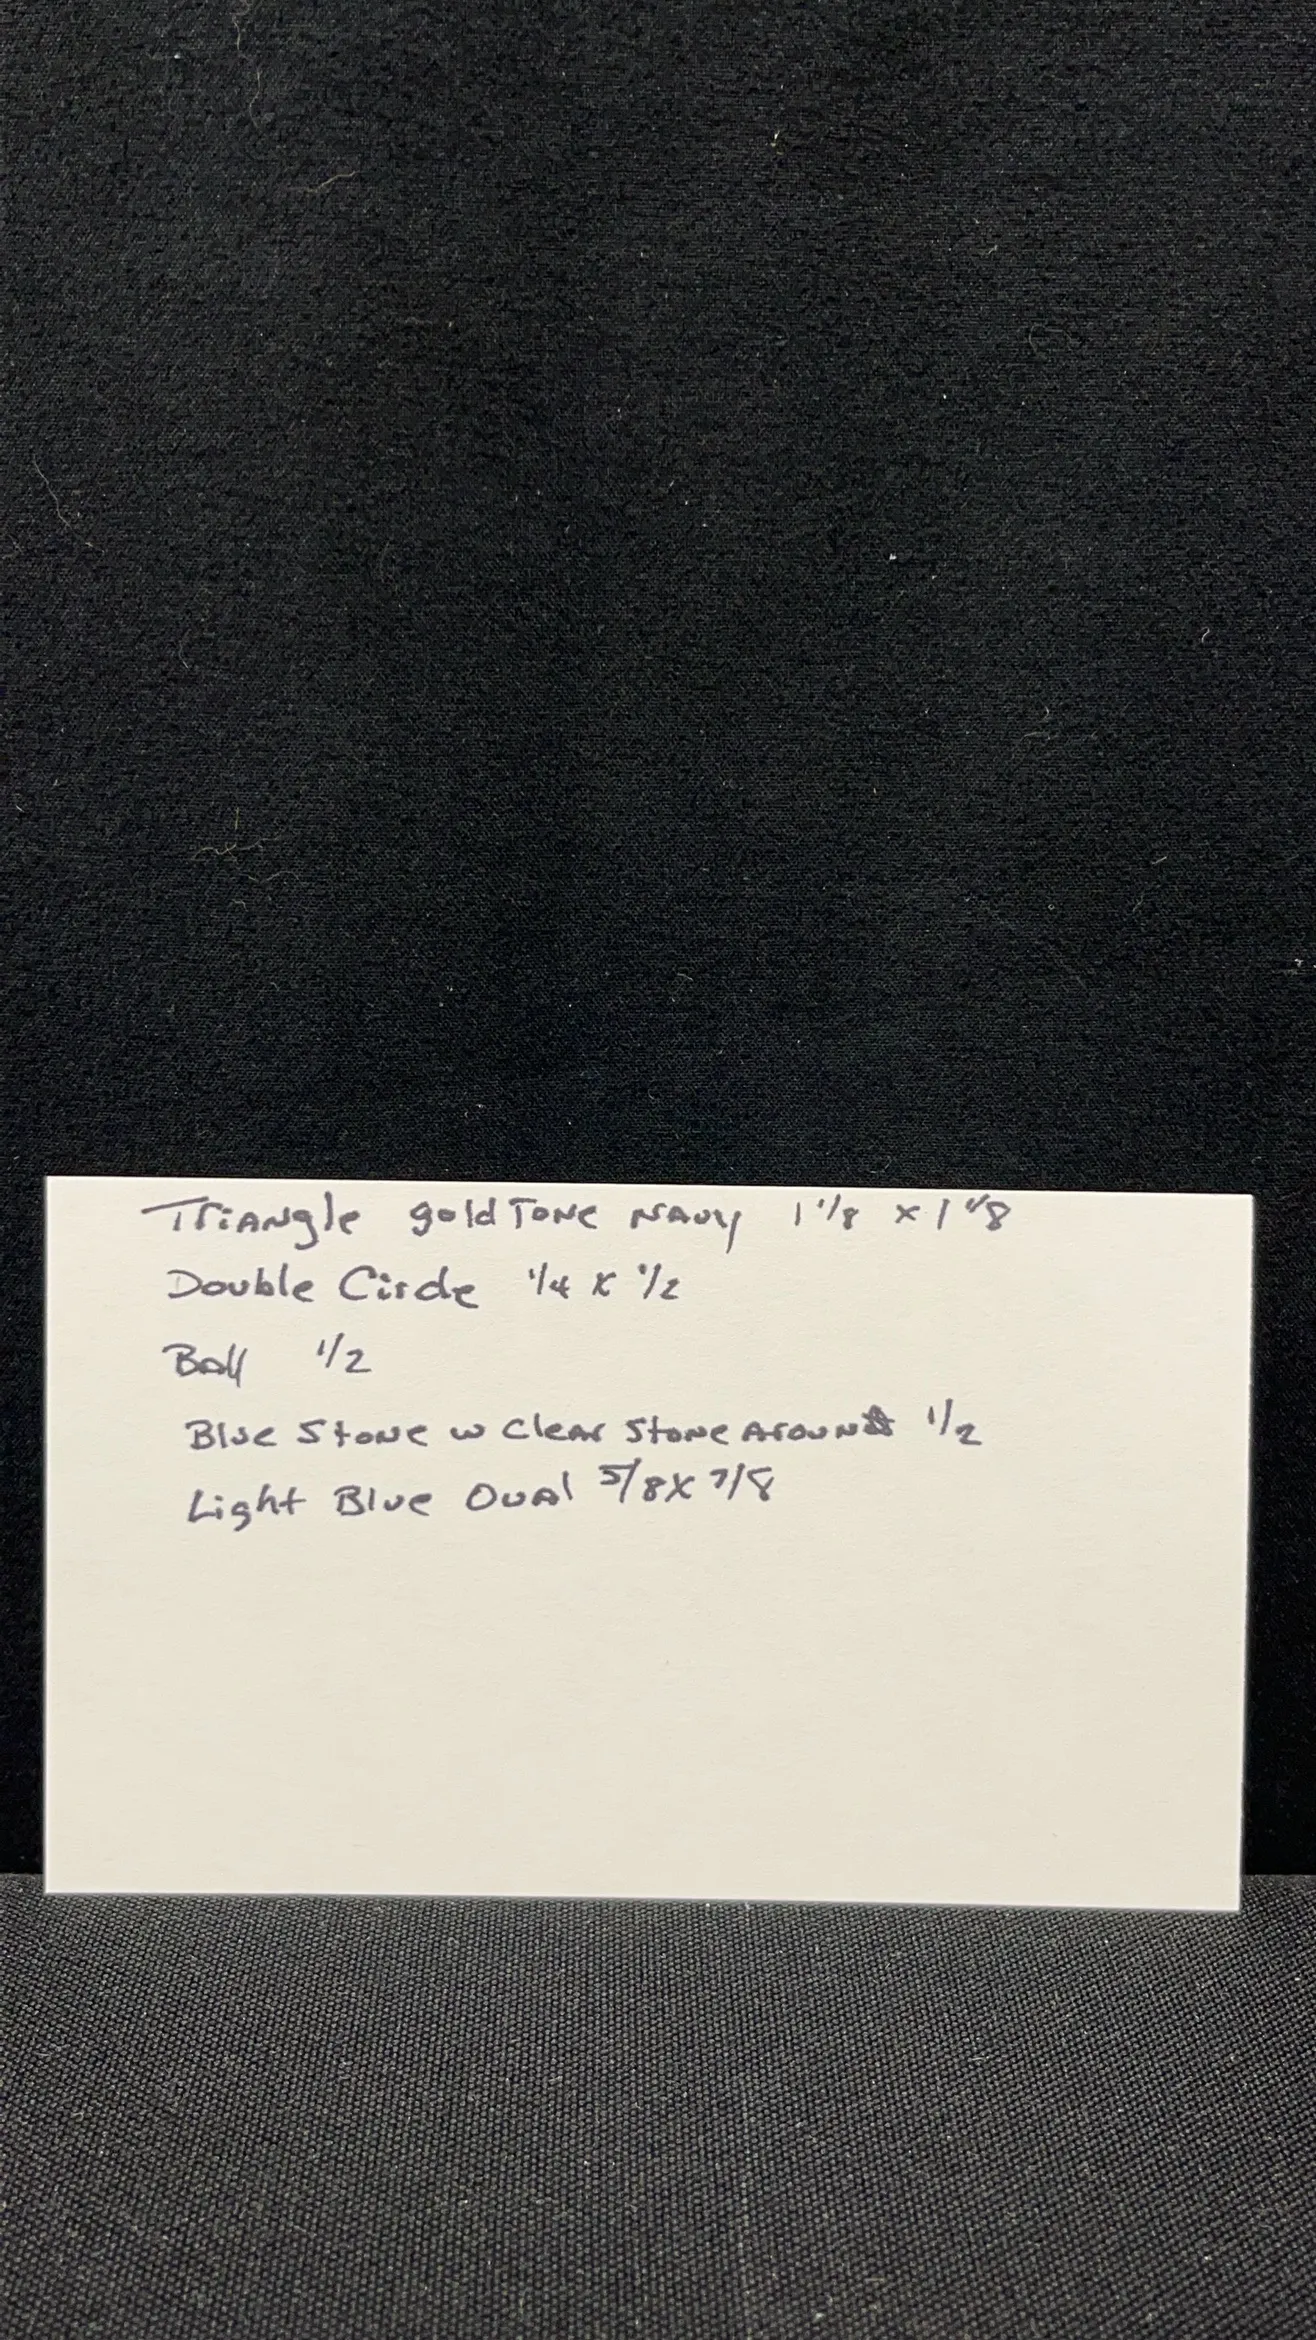 Triangle gold Tone Navy 1 1/8 x 1 1/8
Double Circle 1/4 x 1/2
Ball 1/2
Blue Stone w Clear Stone Around 1/2
Light Blue Oval 5/8 x 7/8